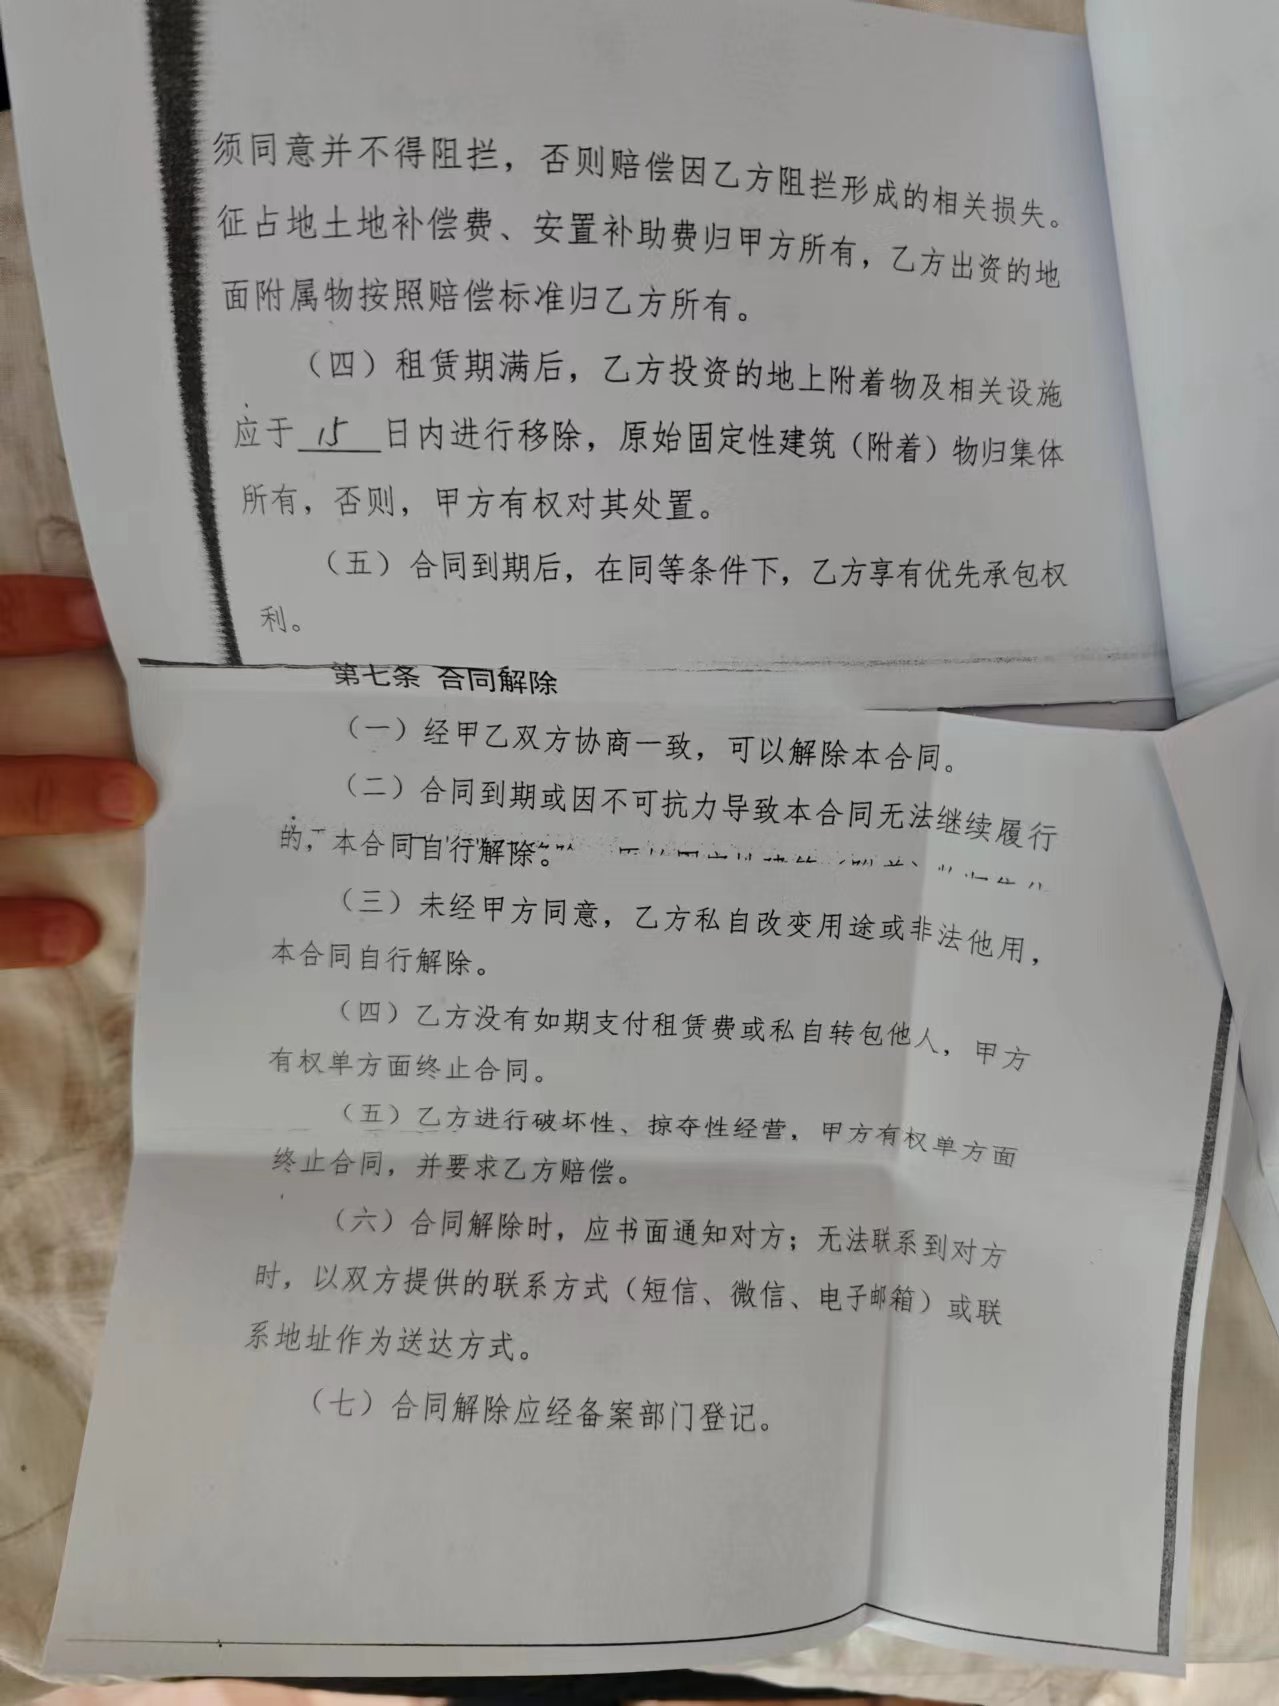 须同意并不得阻拦，否则赔偿因乙方阻拦形成的相关损失。
征占地土地补偿费、安置补助费归甲方所有，乙方出资的地
面附属物按照赔偿标准归乙方所有。
（四）租赁期满后，乙方投资的地上附着物及相关设施
应于 15 日内进行移除，原始固定性建筑（附着）物归集体
所有，否则，甲方有权对其处置。
（五）合同到期后，在同等条件下，乙方享有优先承包权
利。
第七条 合同解除
（一）经甲乙双方协商一致，可以解除本合同。
（二）合同到期或因不可抗力导致本合同无法继续履行
的，本合同自行解除。
（三）未经甲方同意，乙方私自改变用途或非法他用，
本合同自行解除。
（四）乙方没有如期支付租赁费或私自转包他人，甲方
有权单方面终止合同。
（五）乙方进行破坏性、掠夺性经营，甲方有权单方面
终止合同，并要求乙方赔偿。
（六）合同解除时，应书面通知对方；无法联系到对方
时，以双方提供的联系方式（短信、微信、电子邮箱）或联
系地址作为送达方式。
（七）合同解除应经备案部门登记。